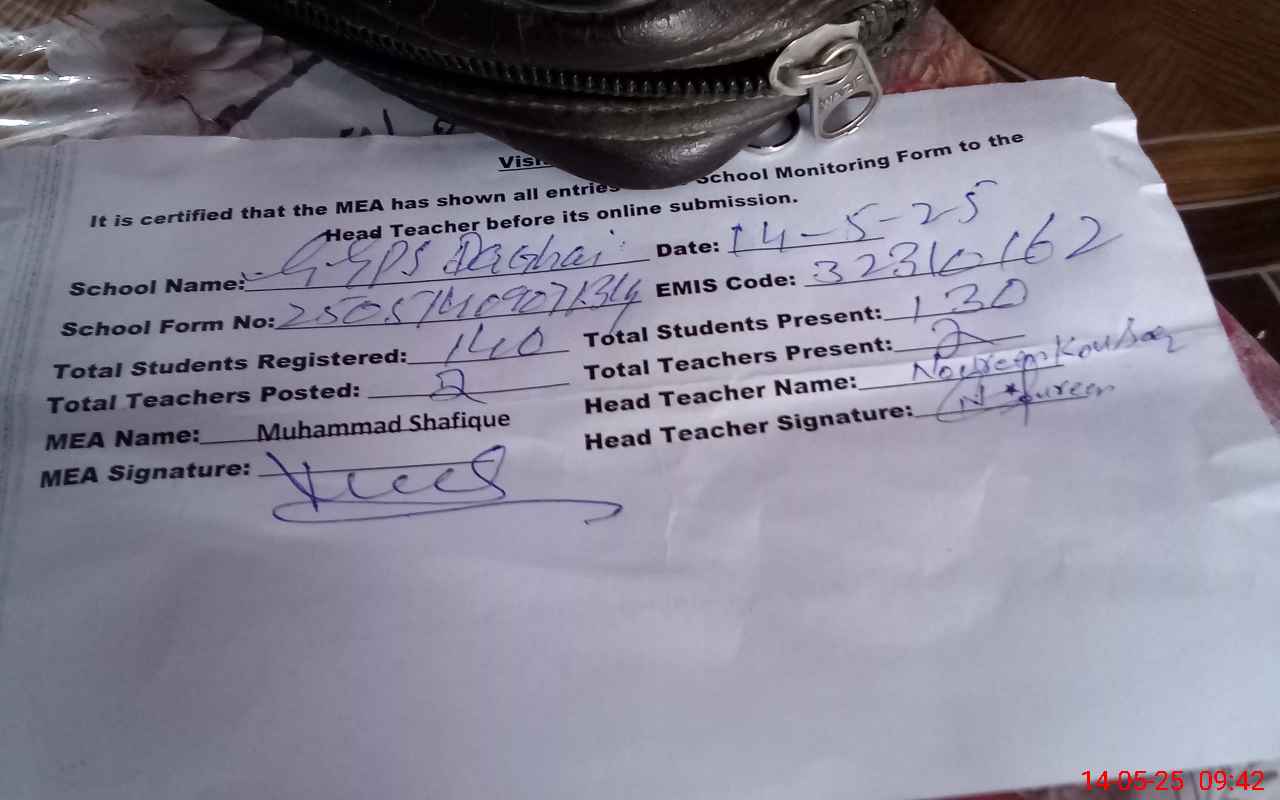 It is certified that the MEA has shown all entries School Monitoring Form to the
Head Teacher before its online submission.
School Name: GGPS Daghai Date: 14-5-25
School Form No: EMIS Code: 32310162
Total Students Registered: 140 Total Students Present: 130
Total Teachers Posted: 2 Total Teachers Present: 2
MEA Name: Muhammad Shafique Head Teacher Name: Noureen Kousar
MEA Signature: Head Teacher Signature: Noureen
14-05-25 09:42